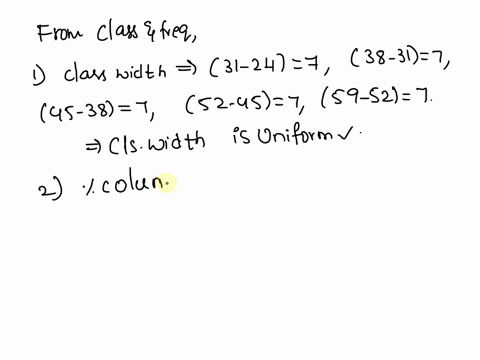 From Class & freq,
1) class width ⇒ (31-24)=7, (38-31)=7,
(45-38)=7, (52-45)=7, (59-52)=7.
⇒ Cls. width is Uniform ✓.
2) % colun.